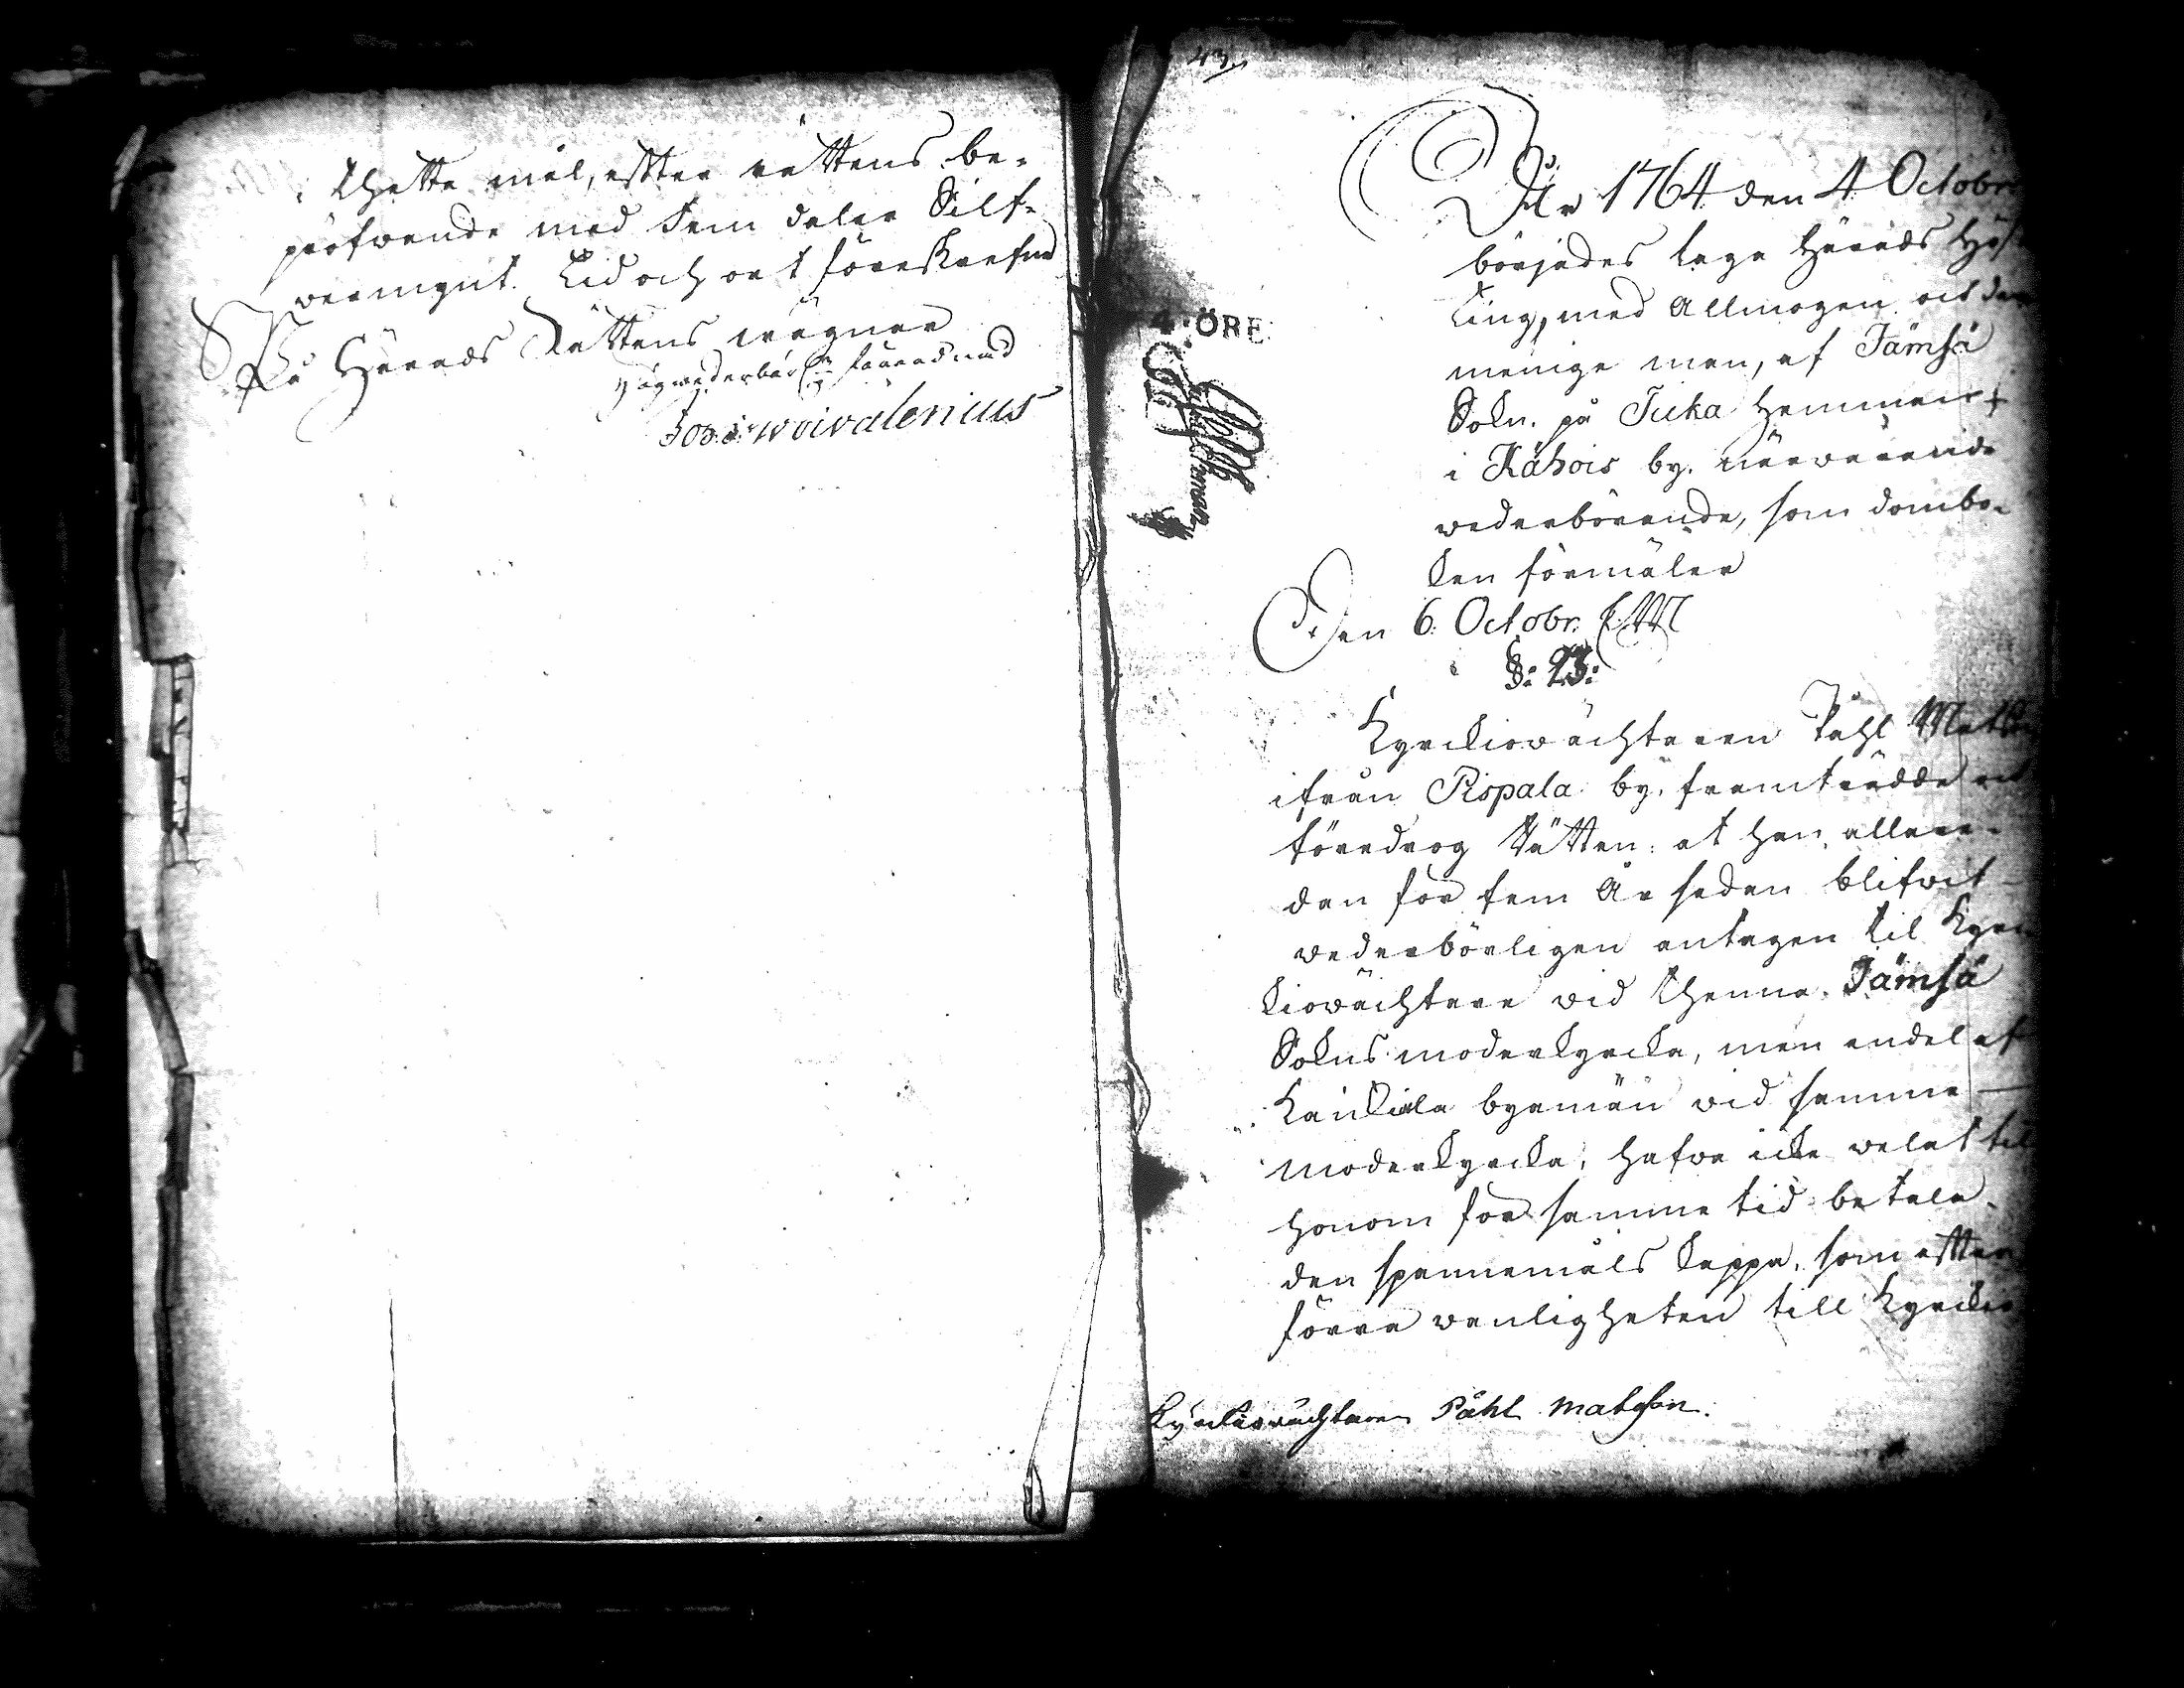 i thetta mål, effter rättens be-
pröfwande med Fem daler Silf-
wermynt. Tid och ort föreskrefne
På Härads Rättens wägnar
43.
År 1764 den 4 Octobr
börjades laga Härads Höst
Ting, med Allmogen och den
menige man, af Jämsä
Sokn. på Juka Hemman
i Kähois by. närwarande
wederbörande, som dombo-
ken förmäler
4. ÖRE.
Den 6. Octobr.
§: 93:
Kyrckiowächtaren Påhl Matss
ifrån Rispala by, framträdde och
föredrog Rätten: at han allare-
dan för fem År sedan blifwit
wederbörligen antagen til Kyrc
kiowächtare wid thenna Jämsä
Sokns moderkyrcka, men endel af
byamän wid samma
moderkyrcka, hafwa icke welat til
honom för samma tid betala
den spannemåls kappa, som effter
förra wanligheten till Kyrckio
Kyrckiowächtaren Påhl Matsson.